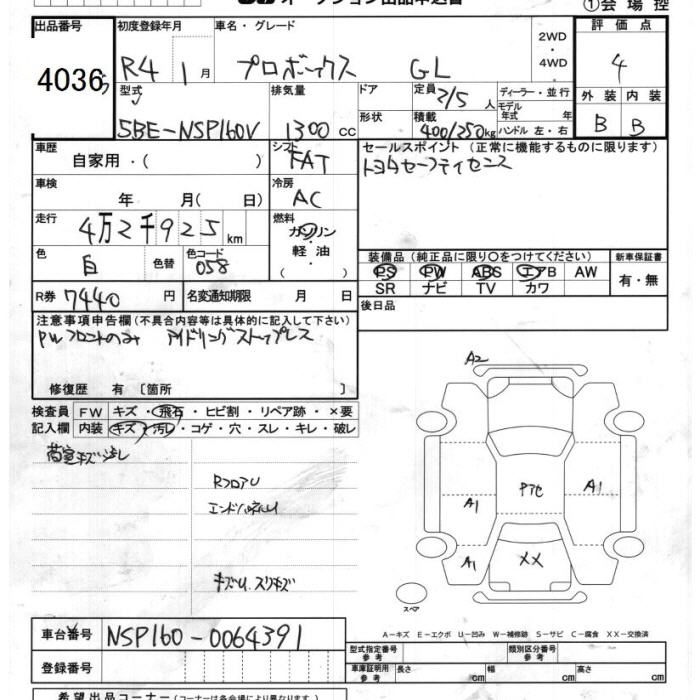 オークション出品申込書 ①会場控
出品番号 初度登録年月 車名・グレード 2WD ・ 4WD 評価点
4036 R4 1月 プロボックス GL 4
型式 排気量 ドア 定員 2/5人 ディーラー・並行 外装 内装
5BE-NSP160V 1300cc 形状 積載 400/250kg モデル年式 年 ハンドル 左・右 B B
車歴 自家用・( ) シフト FAT セールスポイント (正常に機能するものに限ります)
トヨタセーフティセンス
車検 年 月( 日) 冷房 AC
走行 4万2千925km 燃料 ガソリン・軽油・( )
色 白 色替 色コード 058
装備品 (純正品に限り○をつけてください) 新車保証書
PS PW ABS エアB AW 有・無
SR ナビ TV カワ
R券 7440円 名変通知期限 月 日 後日品
注意事項申告欄 (不具合内容等は具体的に記入して下さい)
PWフロントのみ アイドリングストップレス
修復歴 有 [箇所 ]
検査員 FW キズ・飛石・ヒビ割・リペア跡・×要
記入欄 内装 キズ・汚レ・コゲ・穴・スレ・キレ・破レ
荷室キズ汚レ
RフロアU
エンドパネルU
キズU スリキズ
A2
A1
A1
A1
XX
スペア
A-キズ E-エクボ U-凹み W-補修跡 S-サビ C-腐食 XX-交換済
車台番号 NSP160-0064391
登録番号
型式指定番号 参考 類別区分番号 参考
車庫証明用 参考 長さ cm 幅 cm 高さ cm
希望出品コーナー (コーナーは各会場により異なります。)